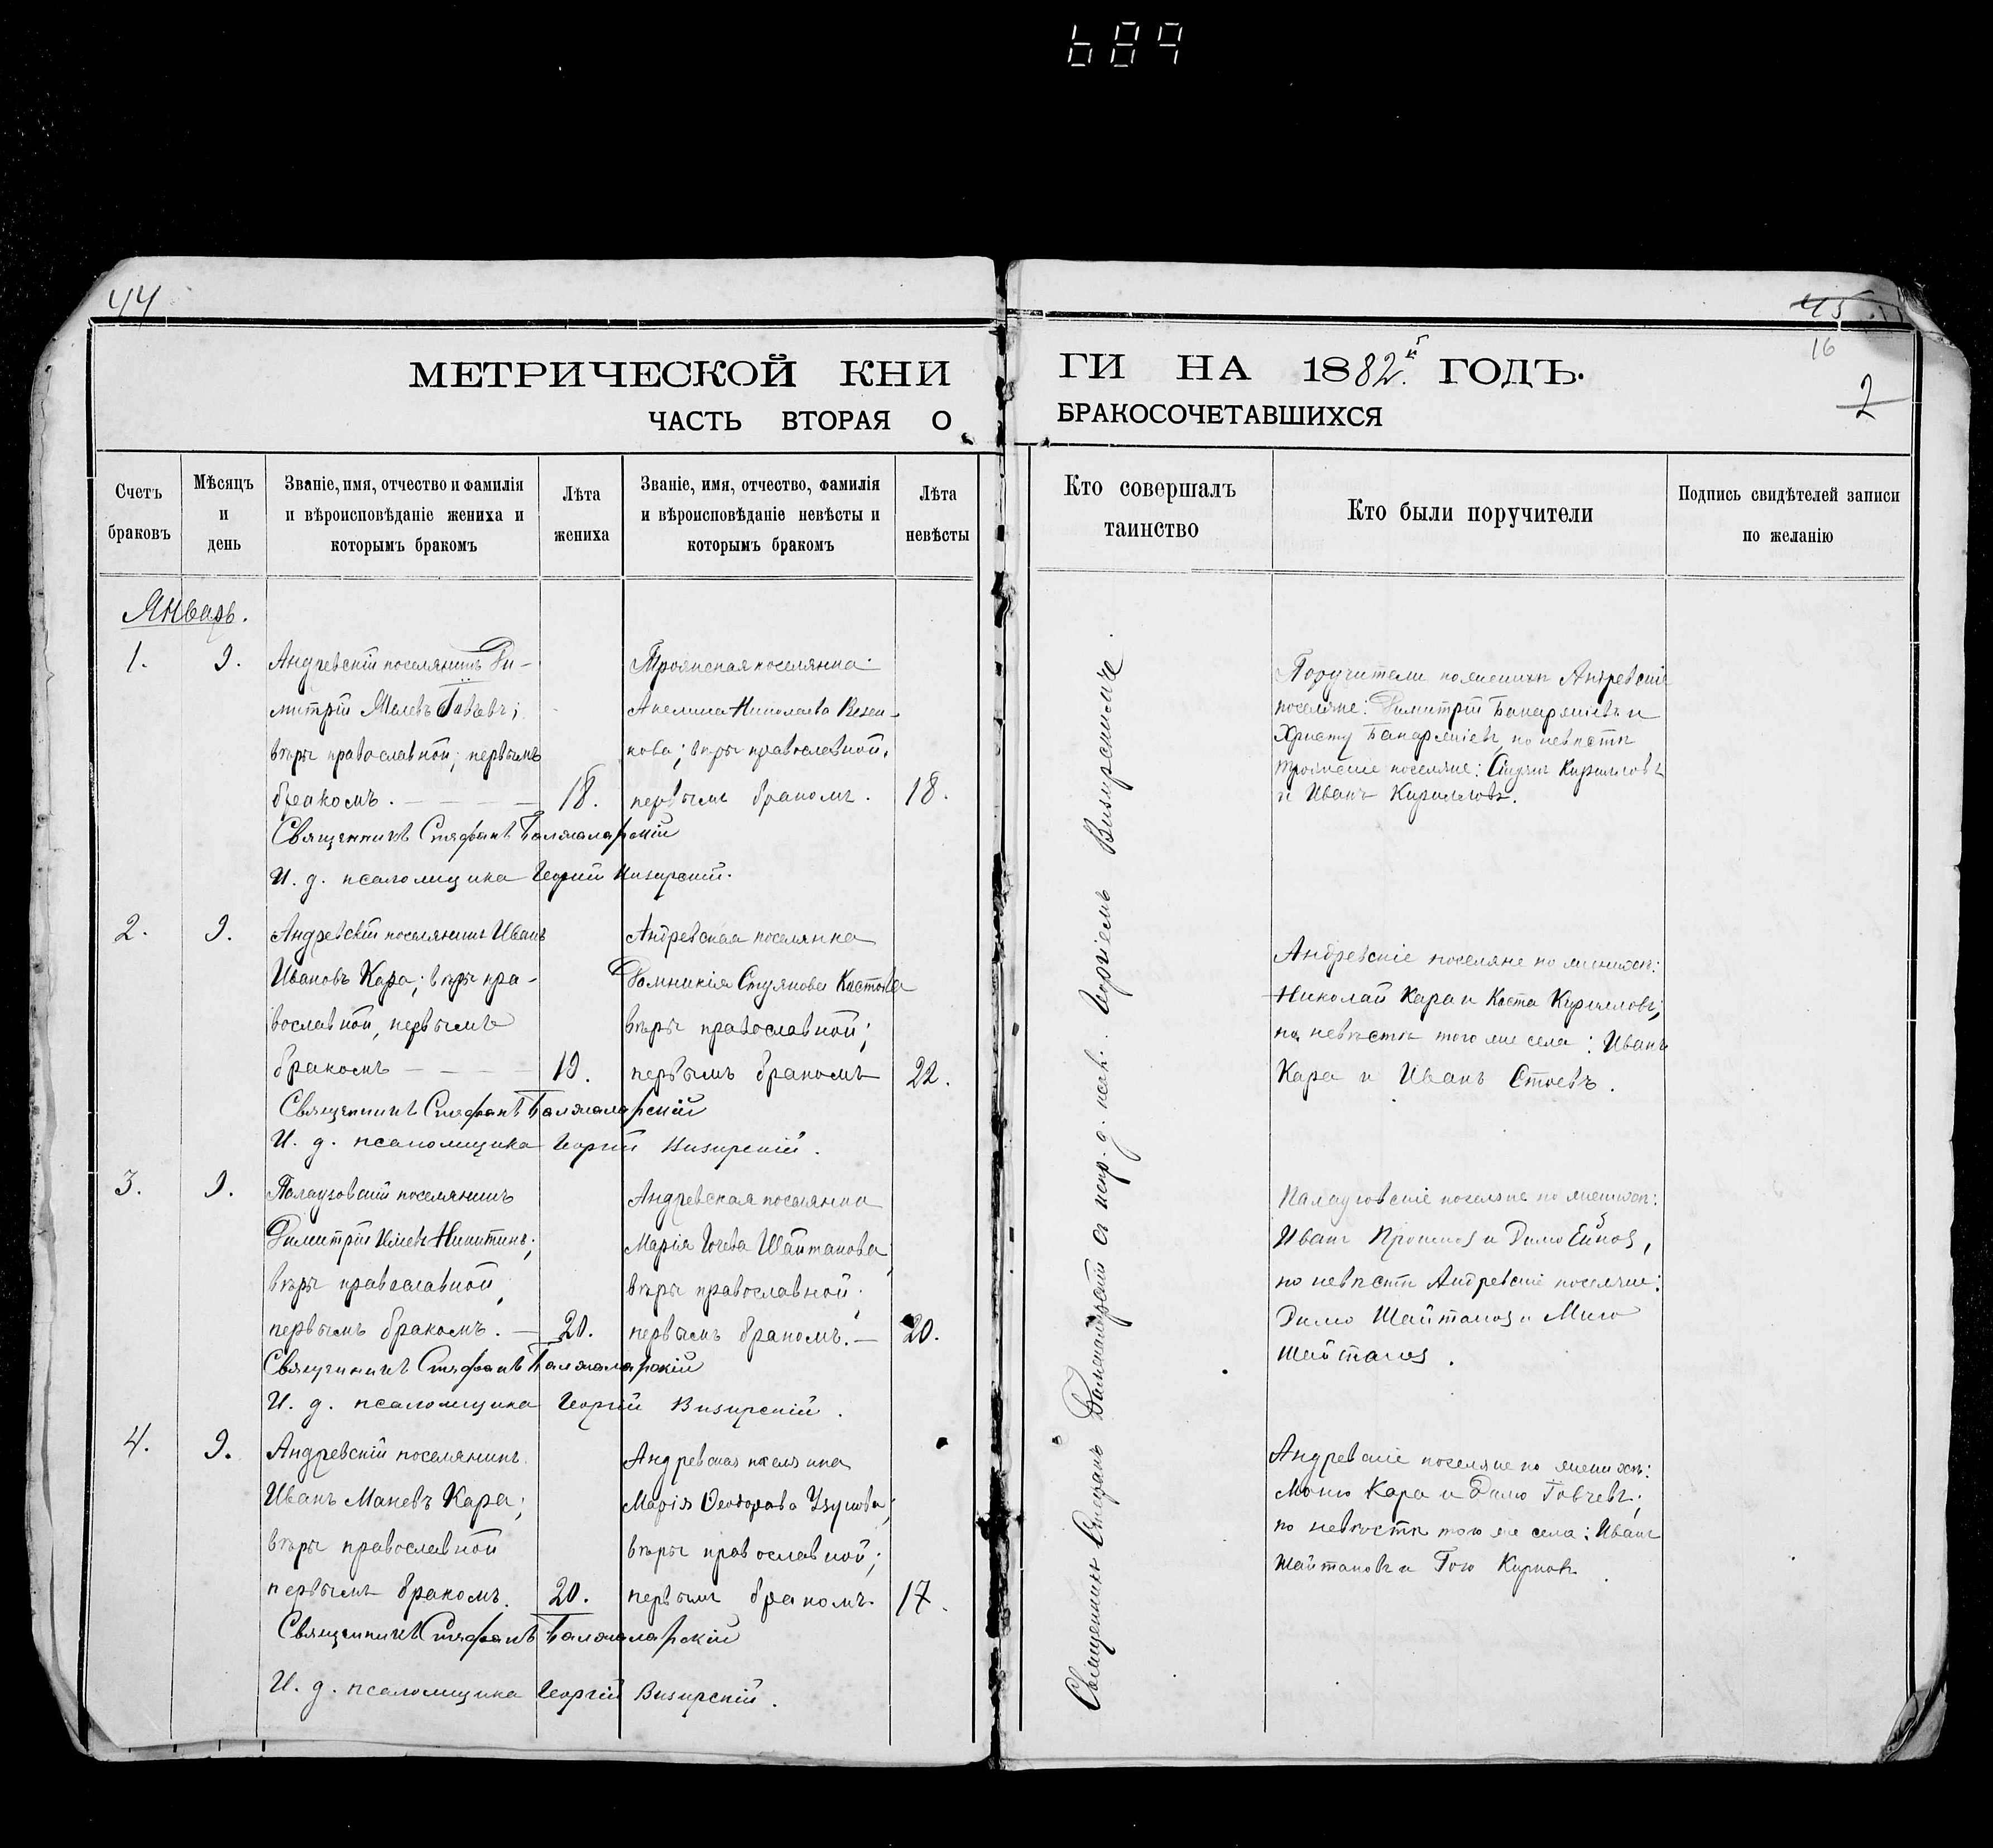 689
44
45
16
2
МЕТРИЧЕСКОЙ КНИ
ГИ НА 1882й ГОДЪ.
ЧАСТЬ ВТОРАЯ О
БРАКОСОЧЕТАВШИХСЯ
Счетъ браковъ
Мѣсяцъ и день
Званіе, имя, отчество и фамилія
и вѣроисповѣданіе жениха и
которымъ бракомъ
Лѣта жениха
Званіе, имя, отчество, фамилія
и вѣроисповѣданіе невѣсты и
которымъ бракомъ
Лѣта невѣсты
Кто совершалъ
таинство
Кто были поручители
Подпись свидѣтелей записи
по желанію
Январь.
1.
9.
Андревскій поселянинъ Ди-
митрій
вѣры православной; первымъ
бракомъ.
18.
Троянская поселянка
Николаева
кова; вѣры православной,
первымъ бракомъ.
18.
Священникъ Стефанъ
И. д. псаломщика Георгій Визирскій.
Поручители по женихѣ Андревскіе
поселяне: Димитрій
Христу по невѣстѣ
Троянскіе поселяне: Кирилловъ
и Иванъ Кирилловъ.
2.
9.
Андревскій поселянинъ Иванъ
Ивановъ Кара; вѣры пра-
вославной, первымъ
бракомъ
19.
Андревская поселянка
Домникія Стуянова Костова
вѣры православной;
первымъ бракомъ
22.
Священникъ Стефанъ
И. д. псаломщика Георгій Визирскій.
Андревскіе поселяне по женихѣ:
Николай Кара и Коста Кирилловъ;
по невѣстѣ того же села: Иванъ
Кара и Иванъ Стоевъ.
3.
9.
Палаузовскій поселянинъ
Димитрій Никитинъ;
вѣры православной,
первымъ бракомъ.
20.
Андревская поселянка
Марія Шайтанова;
вѣры православной;
первымъ бракомъ.
20.
Священникъ Стефанъ
И. д. псаломщика Георгій Визирскій.
Палаузовскіе поселяне по женихѣ:
Иванъ и Димо
по невѣстѣ Андревскіе поселяне:
Димо Шайтановъ и
Шайтановъ.
4.
9.
Андревскій поселянинъ
Иванъ Маневъ Кара;
вѣры православной
первымъ бракомъ.
20.
Андревская поселянка
Марія Ѳеодорова Узунова;
вѣры православной;
первымъ бракомъ.
17.
Священникъ Стефанъ
И. д. псаломщика Георгій Визирскій.
Андревскіе поселяне по женихѣ:
Кара и Димо Говчевъ;
по невѣстѣ того же села: Иванъ
Шайтановъ и
Священникъ Стефанъ съ испр. д. псал. Георгіемъ Визирскимъ.